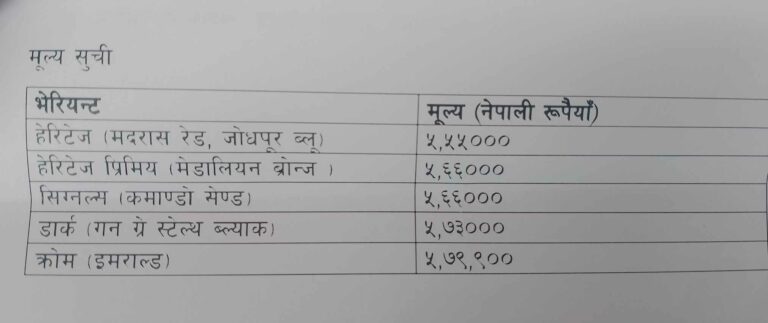 मूल्य सुची
भेरियन्ट मूल्य (नेपाली रूपैयाँ)
हेरिटेज (मदरास रेड, जोधपूर ब्लू) ५,५५०००
हेरिटेज प्रिमिय (मेडालियन ब्रोन्ज ) ५,६६०००
सिग्नल्स (कमाण्डो सेण्ड) ५,६६०००
डार्क (गन ग्रे स्टेल्थ ब्ल्याक) ५,७३०००
क्रोम (इमराल्ड) ५,७९,९००